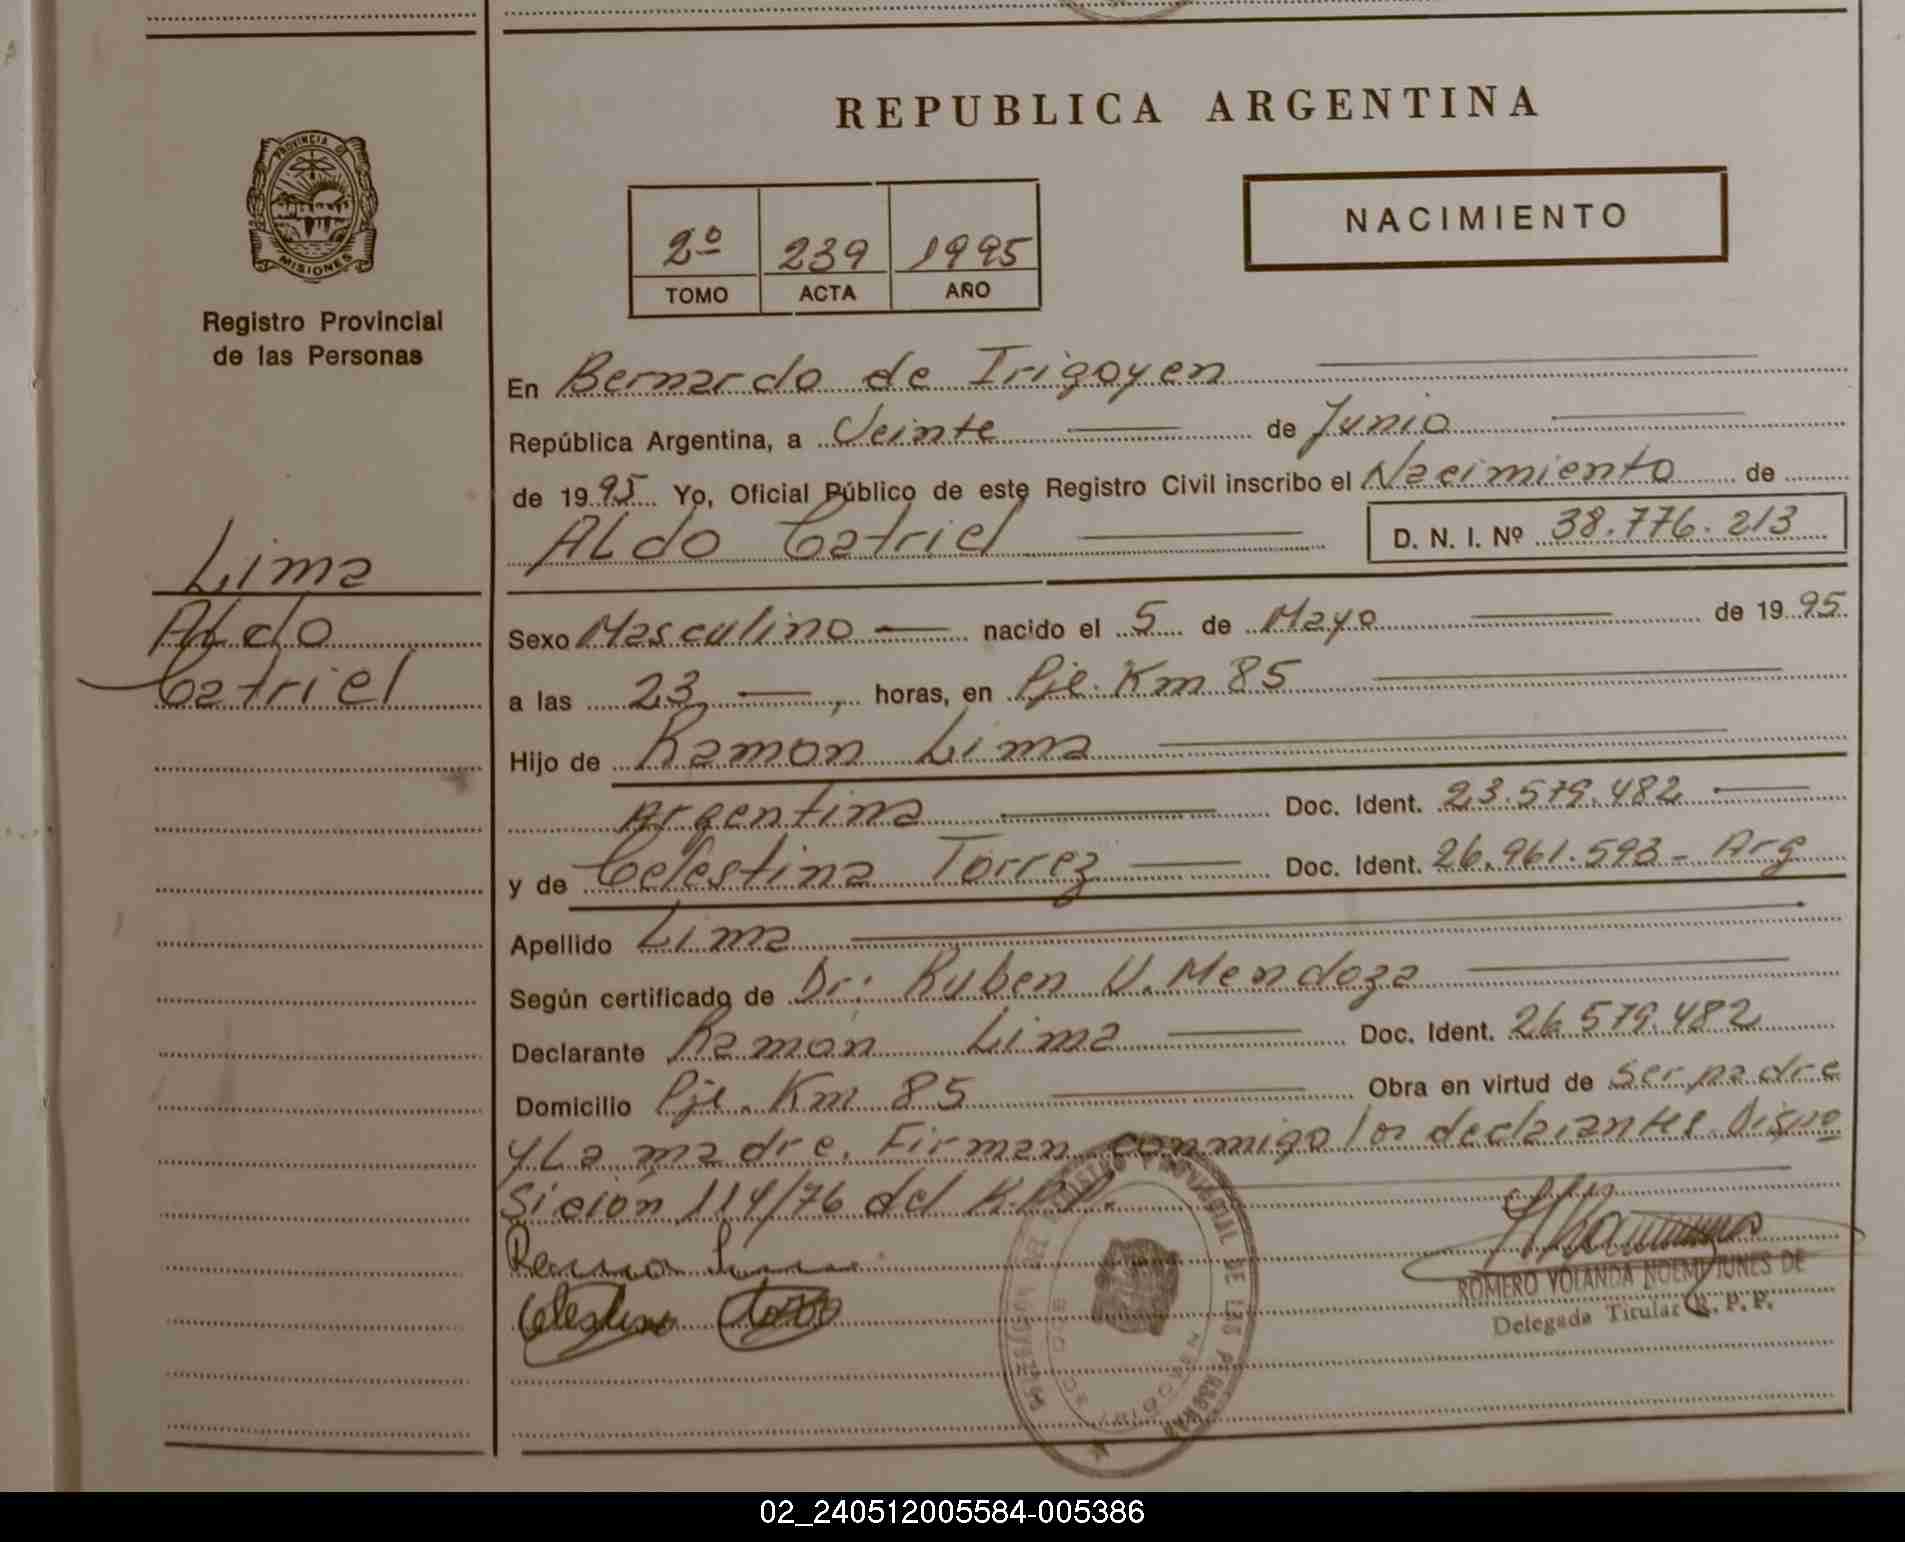 PROVINCIA DE
MISIONES
Registro Provincial
de las Personas
Lima
Aldo
Catriel
REPUBLICA ARGENTINA
2º 239 1995
TOMO ACTA AÑO
NACIMIENTO
En Bernardo de Irigoyen
República Argentina, a Veinte de Junio
de 1995 Yo, Oficial Público de este Registro Civil inscribo el Nacimiento de
Aldo Catriel D. N. I. Nº 38.776.213
Sexo Masculino nacido el 5 de Mayo de 1995
a las 23 horas, en Pje. Km 85
Hijo de Ramon Lima
Argentina Doc. Ident. 23.579.482
y de Celestina Torrez Doc. Ident. 26.961.593 - Arg
Apellido Lima
Según certificado de Dr: Ruben V. Mendoza
Declarante Ramón Lima Doc. Ident. 26.579.482
Domicilio Pje. Km 85 Obra en virtud de ser padre
y La madre. Firman conmigo los declarantes. Dispo
sición 114/76 del
Celestina
REGISTRO PROVINCIAL DE LAS PERSONAS
ROMERO YOLANDA NOEMI JUNES DE
Delegada Titular R. P. P.
02_240512005584-005386